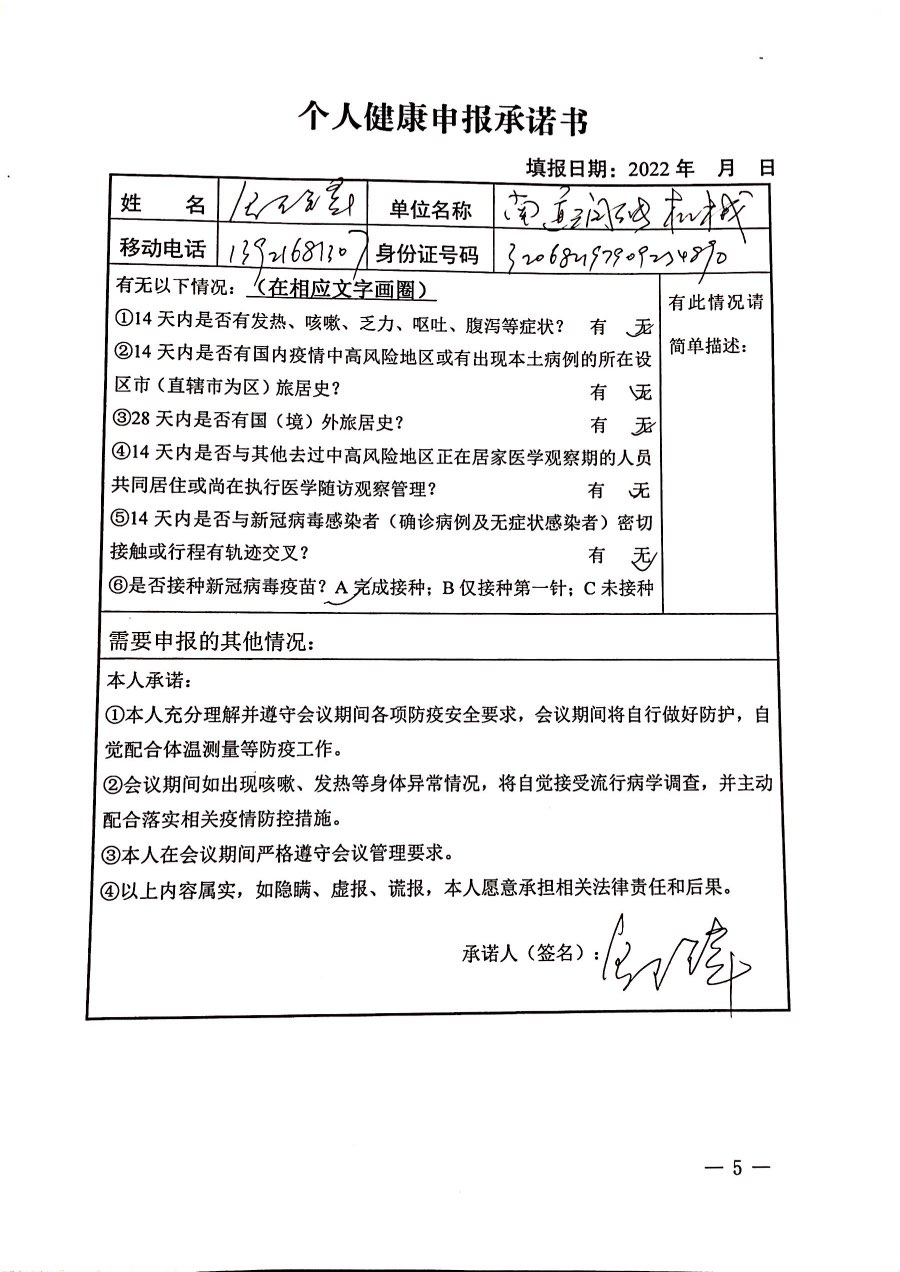 个人健康申报承诺书
填报日期：2022 年 月 日
姓 名 单位名称 南通 机械
移动电话 13921681307 身份证号码 320682197909254890
有无以下情况：（在相应文字画圈）
有此情况请
简单描述：
①14 天内是否有发热、咳嗽、乏力、呕吐、腹泻等症状？ 有 无
②14 天内是否有国内疫情中高风险地区或有出现本土病例的所在设
区市（直辖市为区）旅居史？ 有 无
③28 天内是否有国（境）外旅居史？ 有 无
④14 天内是否与其他去过中高风险地区正在居家医学观察期的人员
共同居住或尚在执行医学随访观察管理？ 有 无
⑤14 天内是否与新冠病毒感染者（确诊病例及无症状感染者）密切
接触或行程有轨迹交叉？ 有 无
⑥是否接种新冠病毒疫苗？A 完成接种；B 仅接种第一针；C 未接种
需要申报的其他情况：
本人承诺：
①本人充分理解并遵守会议期间各项防疫安全要求，会议期间将自行做好防护，自
觉配合体温测量等防疫工作。
②会议期间如出现咳嗽、发热等身体异常情况，将自觉接受流行病学调查，并主动
配合落实相关疫情防控措施。
③本人在会议期间严格遵守会议管理要求。
④以上内容属实，如隐瞒、虚报、谎报，本人愿意承担相关法律责任和后果。
承诺人（签名）：
— 5 —